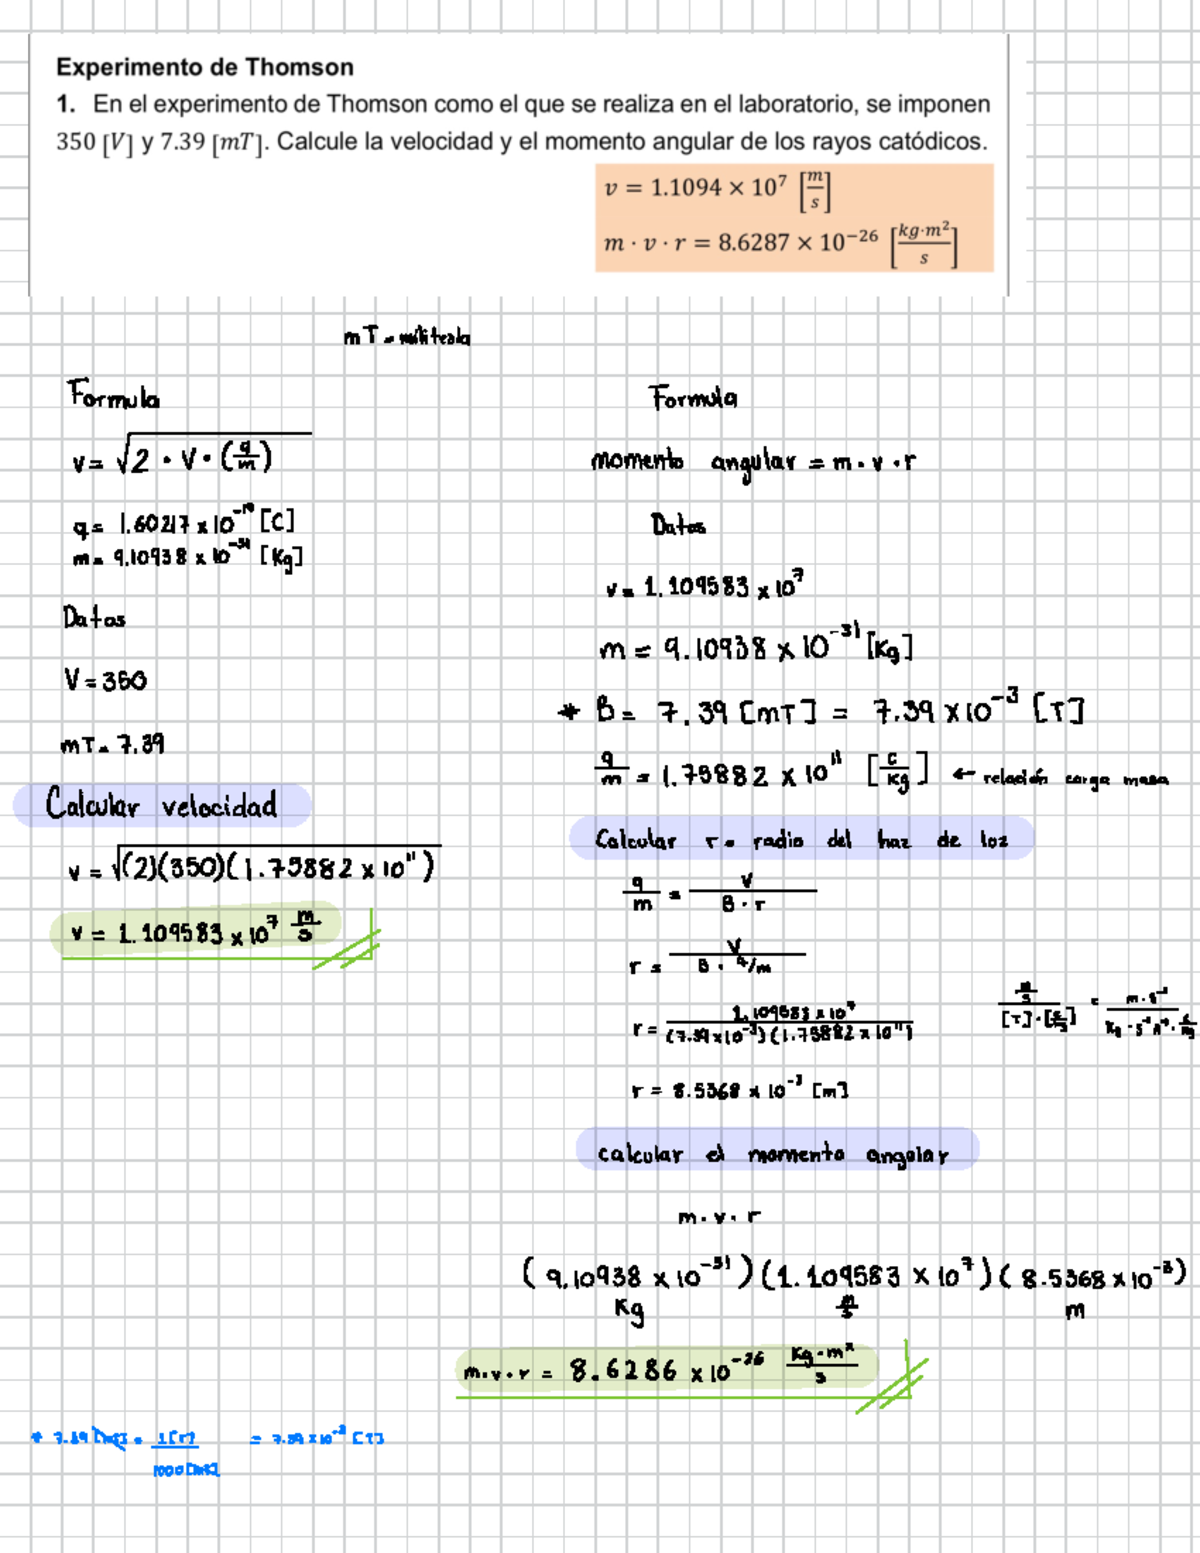 Experimento de Thomson
1. En el experimento de Thomson como el que se realiza en el laboratorio, se imponen
350 [V] y 7.39 [mT]. Calcule la velocidad y el momento angular de los rayos catódicos.
v = 1.1094 × 10⁷ [m/s]
m · v · r = 8.6287 × 10⁻²⁶ [kg·m²/s]
mT = militesla
Formula
v = √2 · V · (q/m)
q = 1.60217 x 10⁻¹⁹ [C]
m = 9.10938 x 10⁻³¹ [Kg]
Datos
V = 350
mT = 7.39
Calcular velocidad
v = √(2)(350)(1.75882 x 10¹¹)
v = 1.109583 x 10⁷ m/s
Formula
momento angular = m · v · r
Datos
v = 1.109583 x 10⁷
m = 9.10938 x 10⁻³¹ [Kg]
* B = 7.39 [mT] = 7.39 x 10⁻³ [T]
q/m = 1.75882 x 10¹¹ [C/Kg] ← relación carga masa
Calcular r = radio del haz de loz
q/m = v / B · r
r = v / B · q/m
r = 1.109583 x 10⁷ / (7.39 x 10⁻³)(1.75882 x 10¹¹)
r = 8.5368 x 10⁻³ [m]
calcular el momento angolar
m · v · r
(9.10938 x 10⁻³¹)(1.109583 x 10⁷)(8.5368 x 10⁻³)
Kg m/s m
m · v · r = 8.6286 x 10⁻²⁶ Kg · m²/s
* 7.39 [mT] · 1[T] / 1000[mT] = 7.39 x 10⁻³ [T]